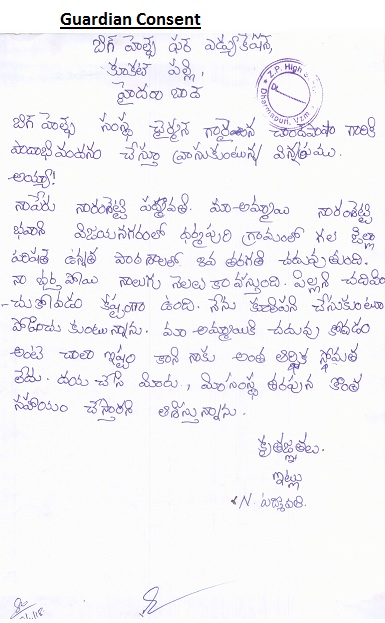 Guardian Consent
బిగ్ హెల్ప్ ఫర్ ఎడ్యుకేషన్,
కూకట్ పల్లి,
హైదరాబాద్
Z.P. High
Dharmapuri, Vzm
బిగ్ హెల్ప్ సంస్థ చైర్మన్ గారైన చాంద్ పాషా గారికి
పాదాభివందనం చేస్తూ వ్రాసుకుంటున్న విన్నపము.
అయ్యా!
నాపేరు నారంశెట్టి పద్మావతి. మా అమ్మాయి నారంశెట్టి
భవాని విజయనగరంలో ధర్మపురి గ్రామంలో గల జిల్లా
పరిషత్ ఉన్నత పాఠశాలలో తరగతి చదువుతుంది.
నా భర్త పోయి నాలుగు నెలలు కావస్తుంది. పిల్లని చదివిం
-చుకోవడం కష్టంగా ఉంది. నేను కూలిపని చేసుకుంటూ
పోషించుకుంటున్నాను. మా అమ్మాయికి చదువుకోవడం
అంటే చాలా ఇష్టం కాని నాకు అంత ఆర్థిక స్తోమత
లేదు. దయచేసి మీరు, మీ సంస్థ తరపున కొంత
సహాయం చేస్తారని ఆశిస్తున్నాను.
కృతజ్ఞతలు.
ఇట్లు
N. పద్మావతి.